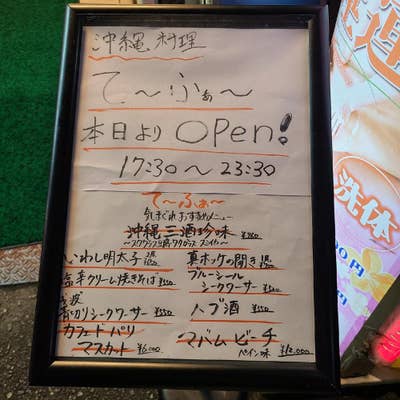 沖縄料理
て〜ふぁ〜
本日より OPen!
17:30〜23:30
て〜ふぁ〜
気まぐれおすすめメニュー
沖縄三酒珍味
いわし明太子
真ホッケの開き
塩辛クリーム焼きそば ¥550
ブルーシール
シークワサー
青切りシークワーサー ¥550
ハブ酒 ¥550
カフェドパリ
マスカット ¥6000
マバムビーチ
パイン味 ¥12,000
洗体
円